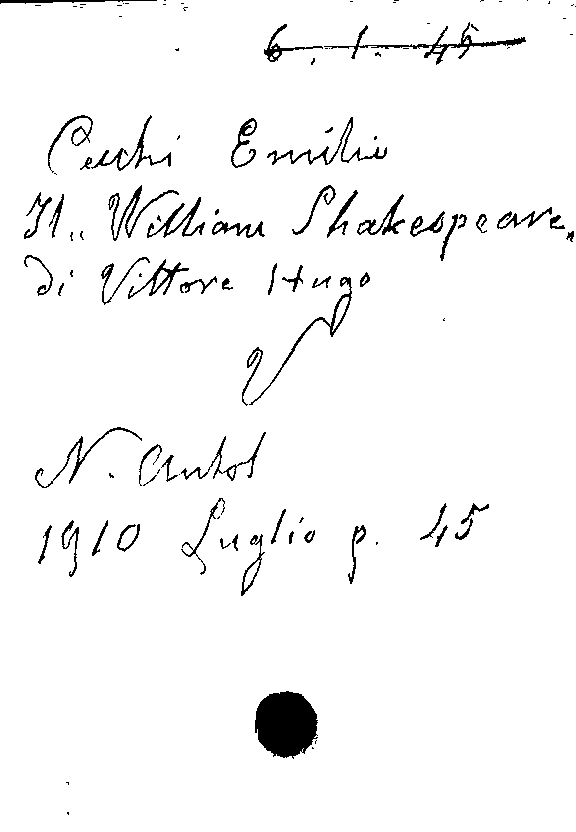 6. 1. 45
Cecchi Emilio
Il „William Shakespeare„
di Vittore Hugo
V
N. Antol
1910 Luglio p. 45